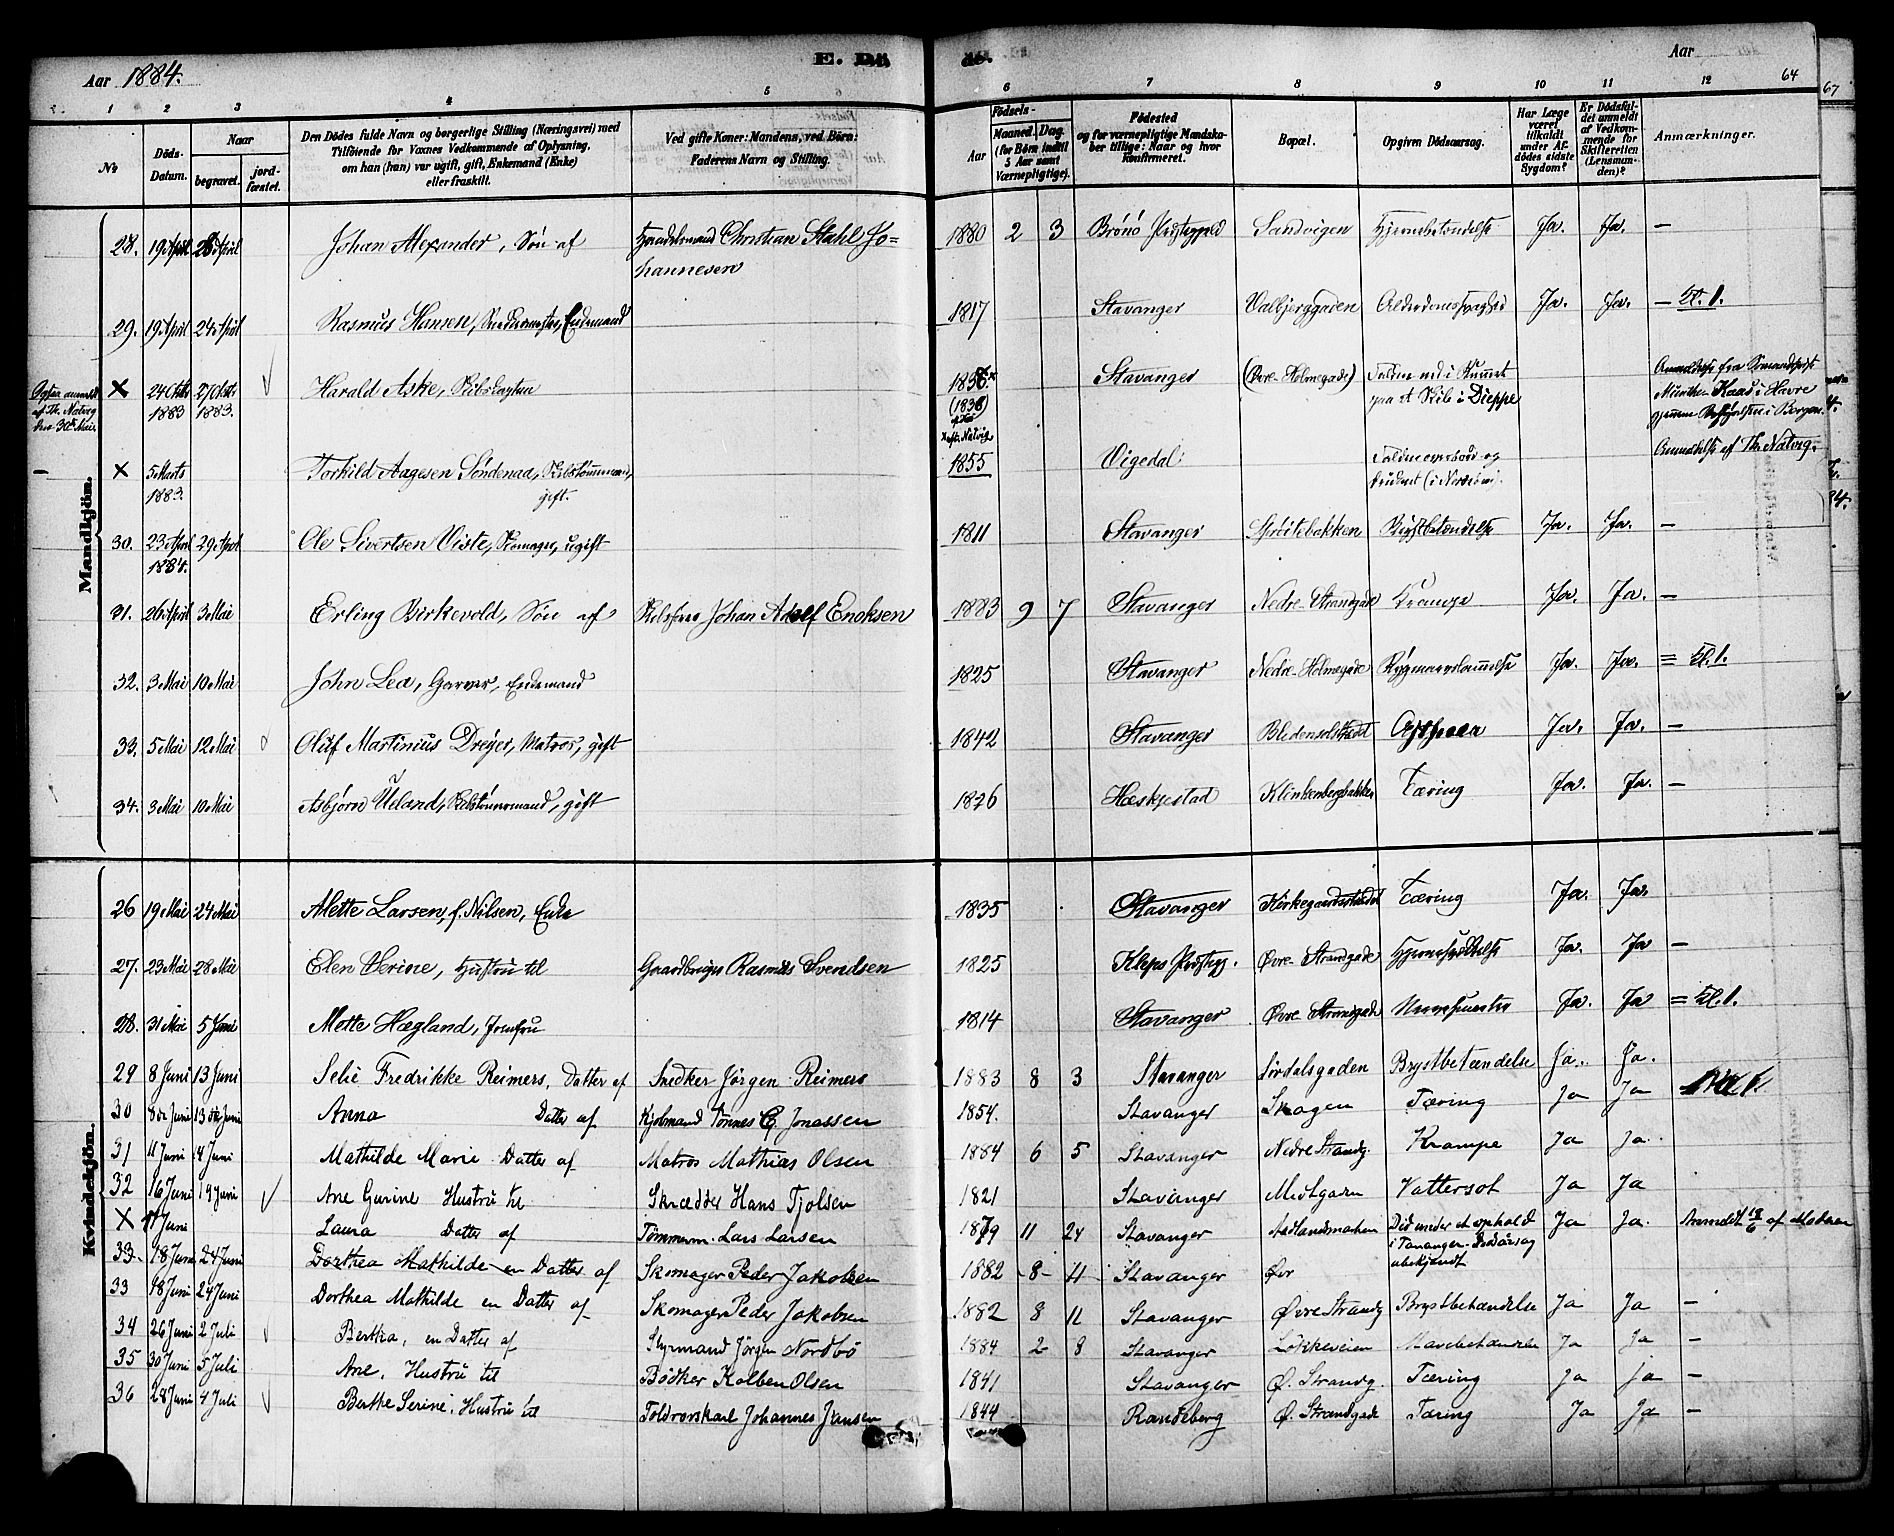 Aar 1884.
E. Dö
de.
Aar
64
67
1 2 3 4 5 6 7 8 9 10 11 12
№
Döds-Datum.
Naar
begravet.
jord-fæstet.
Den Dödes fulde Navn og borgerlige Stilling (Næringsvei) med
Tilföiende for Voxnes Vedkommende af Oplysning,
om han (hun) var ugift, gift, Enkemand (Enke)
eller fraskilt.
Ved gifte Koner: Mandens, ved Börn:
Faderens Navn og Stilling.
Födsels-
Aar
Maaned. Dag.
(for Börn indtil
5 Aar samt
Værnepligtige).
Födested
og for værnepligtige Mandska-
ber tillige: Naar og hvor
konfirmeret.
Bopæl.
Opgiven Dödsaarsag.
Har Læge
været
tilkaldt
under Af-
dödes sidste
Sygdom?
Er Dödsfal-
det anmeldt
af Vedkom-
mende for
Skifteretten
(Lensman-
den)?
Anmærkninger.
Mandkjön.
28. 19 April 26 April Johan Alexander, Sön af Handelsmand Christian Stahl Jo= 1880 2 3 Brönö Præstegjeld Sandvigen Hjernebetændelse Ja. Ja. —
hannesen
29. 19 April 24 April Rasmus Hansen, Snedkermester, Enkemand 1817 Stavanger Valbjerggaden Alderdomssvaghed Ja. Ja. —
X 24 Oktbr 27 Oktbr Harald Aske, Skibskaptein 1856 Stavanger (Øvre Holmegade) Falden ned i Rummet
1883 1883. (1836) paa et Skib i Dieppe
Anmeldelse fra Sömandspræst
Munthe Kaas i Havre
— X 5 Marts Torkild Aagesen Söndenaa, Skibstömmermand, 1855 Vigedal Anmeldelse af Th. Natvig
1883. gift.
30. 23 April 29 April Ole Sivertsen Viste, Skomager, ugift 1811 Stavanger Spröitebakken Brystbetændelse Ja. Ja. —
1884.
31. 26 April 3 Mai Erling Birkevold, Sön af Skibsförer Johan Adolf Enoksen 1883 9 7 Stavanger Nedre Strandgade Krampe Ja. Ja. —
32. 3 Mai 10 Mai John Lea, Garver, Enkemand 1825 Stavanger Nedre Holmegade Rygmarvslammelse Ja. Ja. =
33. 5 Mai 12 Mai Oluf Martinius Dreyer, Matros, gift 1842 Stavanger Blidensolstrædet Ja. Ja. —
34. 3 Mai 10 Mai Asbjörn Ueland, Skibstömmermand, gift 1826 Hæskjestad Klinkenbergbakken Tæring Ja. Ja. —
Kvindekjön.
26 19 Mai 24 Mai Mette Larsen, f. Nilsen, Enke 1835 Stavanger Kirkegaardsstrædet Tæring Ja. Ja.
27. 23 Mai 28 Mai Elen Serine, Hustru til Gaardbruger Rasmus Svendsen 1825 Kleps Præsteg. Øvre Strandgade Ja. Ja —
28. 31 Mai 5 Juni Mette Hægland, Jomfru 1814 Stavanger Øvre Strandgade Ja. Ja =
29 8 Juni 13 Juni Selie Fredrikke Reimers, Datter af Snedker Jörgen Reimers 1883 8 3 Stavanger Lövdalsgaden Brystbetændelse Ja. Ja.
30 8de Juni 13de Juni Anna Datter af Kjöbmand Tönnes C Jonassen 1854. Stavanger Skagen Tæring Ja Ja
31 11 Juni 4 Juni Mathilde Marie Datter af Matros Mathias Olsen 1884 6 5 Stavanger Nedre Strandg. Krampe Ja Ja.
32 16 Juni 19 Juni Ane Gurine Hustru til Skrædder Hans Tjolsen 1821 Stavanger Midtgaden Vattersot Ja Ja
X 17 Juni Laura Datter af Tömmerm. Lars Larsen 1879 11 24 Stavanger Aadlandsmarken Död under et ophold Ja Ja. Anmeldt 18/6 af Moderen
i Tananger. Dödsårsag
ubekjendt
33. 18 Juni 24 Juni Dorthea Mathilde en Datter af Skomager Peder Jakobsen 1882 -8- 11 Stavanger Øvr
33 18 Juni 24 Juni Dorthea Mathilde en Datter af Skomager Peder Jakobsen 1882 8 11 Stavanger Øvre Strandg Brystbetændelse Ja Ja —
34 26 Juni 2 Juli Berthea, en Datter af Styrmand Jörgen Nordbö 1884 2 8 Stavanger Lökkeveien Mavebetændelse Ja Ja —
35 30 Juni 5 Juli Ane. Hustru til Bödker Kolben Olsen 1841 Stavanger Ø. Strandg. Tæring Ja Ja —
36 28 Juni 4 Juli Berthe Serine. Hustru til Toldrorskarl Johannes Jansen 1844 Randeberg Ø. Strandgade Tæring Ja Ja —